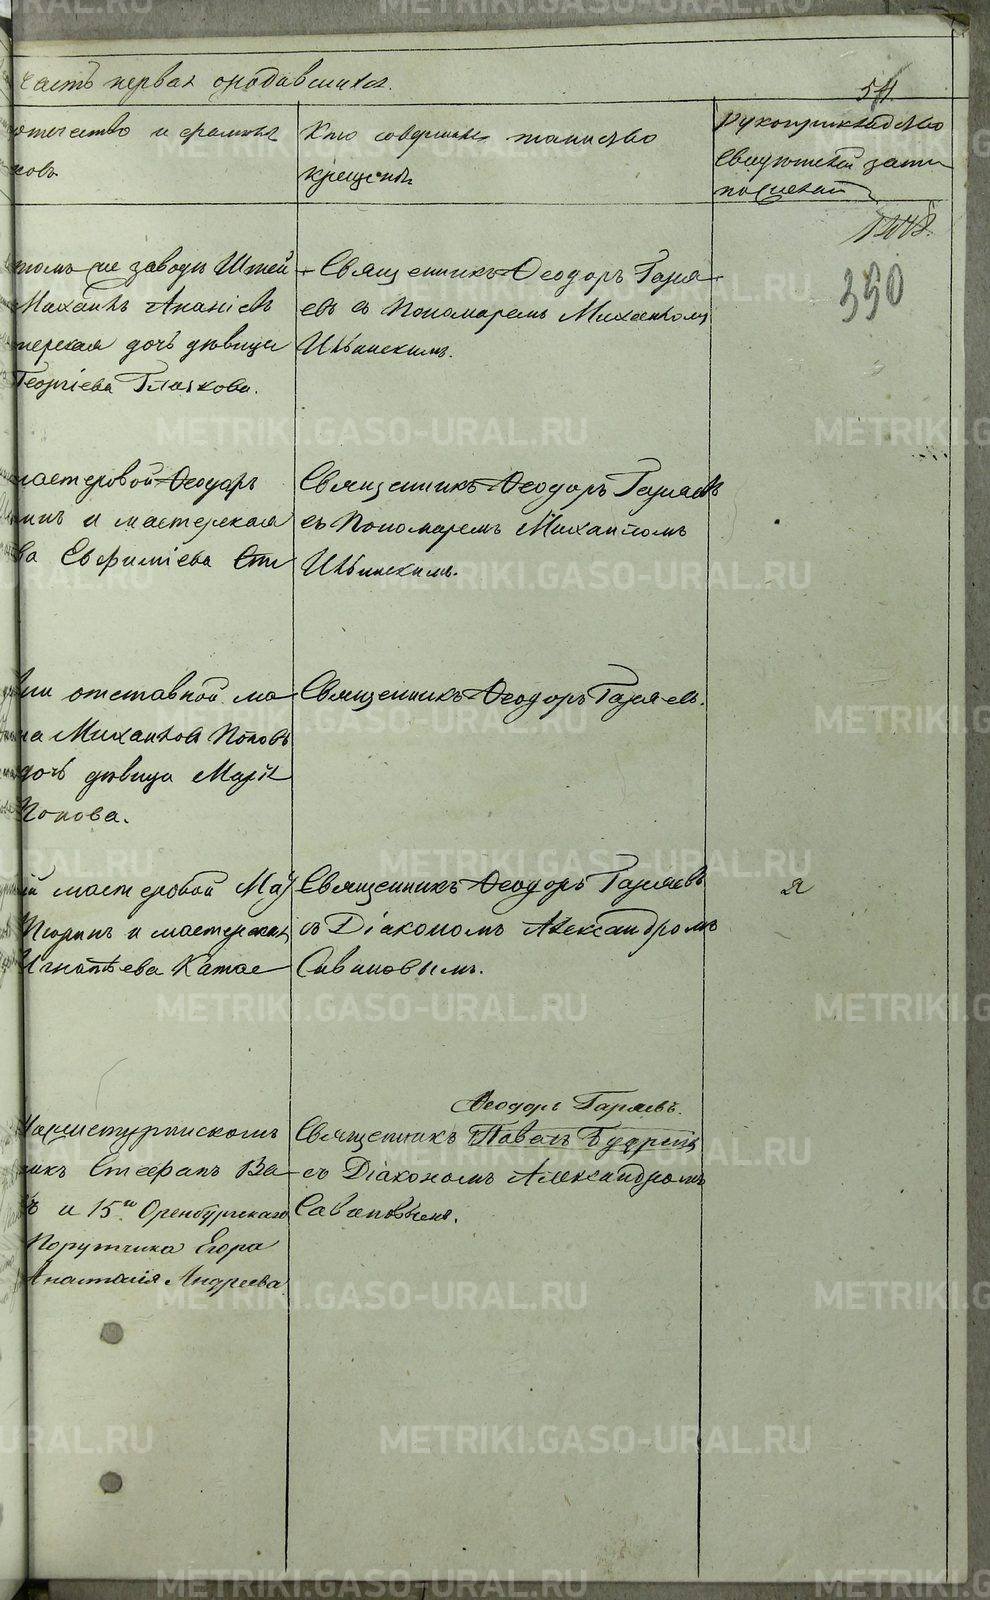 Часть первая о родившихся.
54
отчество и фамилия
ковъ
Кто совершилъ таинство
крещенія
рукоприкладство
свидѣтелей запи
по желанію
390
томъ же заводѣ
Михаилъ Ананіевъ
терская дочь дѣвица
Георгіева Глазкова.
Священникъ Ѳеодоръ Гаря
евъ съ Пономаремъ Михаиломъ
Ильинскимъ.
мастеровой Ѳеодоръ
и мастерская
ва Евфиміева
Священникъ Ѳеодоръ Гаряевъ
съ Пономаремъ Михаиломъ
Ильинскимъ.
отставной ма
на Михайловъ Поповъ
дочь дѣвица Марія
Попова.
Священникъ Ѳеодоръ Гаряевъ.
й мастеровой
и мастерская
Игнатьева Катае
Священникъ Ѳеодоръ Гаряевъ
съ Діакономъ Александромъ
Савиновымъ.
Ѳеодоръ Гаряевъ.
икъ Стефанъ Ва
ъ и 15го Оренбургскаго
Порутчика Егора
Анастасія Андреева
Священникъ Павелъ
съ Діакономъ Александромъ
Савиновымъ.
METRIKI.GASO-URAL.RU